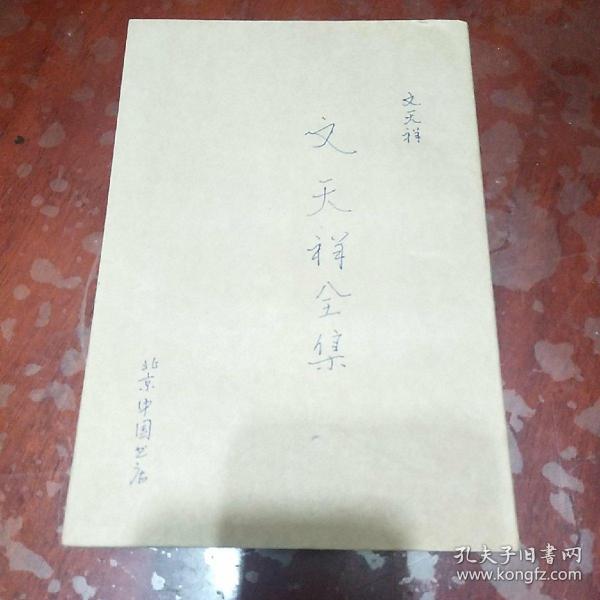 文天祥
文天祥全集
北京中国书店
孔夫子旧書网
www.kongfz.com